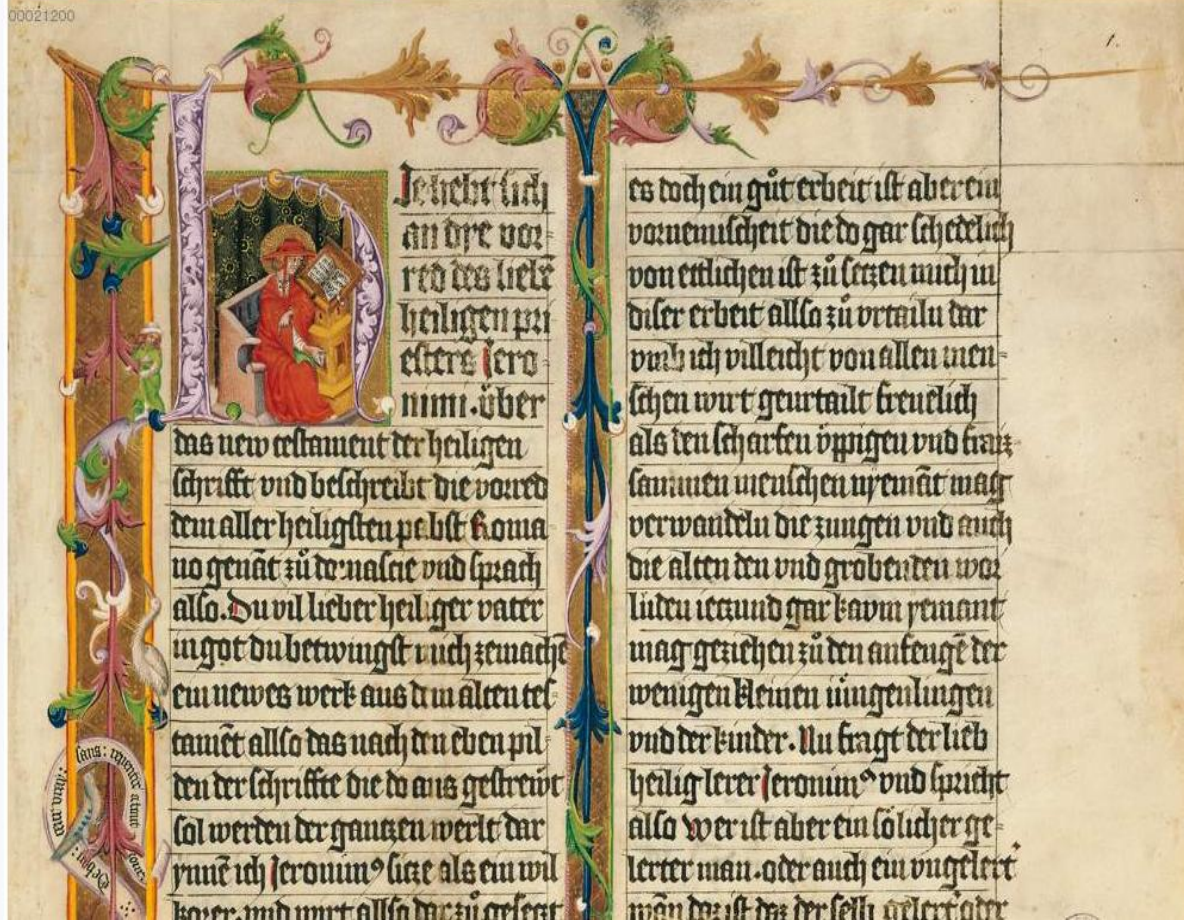 00021200
1.
Hie hebt sich
an dye vor-
red des liebē
heiligen pri
esters Jero-
nimi. über
das new testament der heiligen
schrifft vnd beschreibt die vorred
dem aller heiligsten pabst Roma
no genāt zů damascie vnd sprach
also. Du vil lieber heiliger vater
in got du betwingst mich ze machē
ein newes werk aus dem alten tes-
tamēt allso das nach den eben pil-
den der schriffte die do aus gestrewt
sol werden der gantzen werlt dar
ynnē ich Jeronimꝰ sitze als ein wil
korer. vnd wirt allso dar zů gesetzt
es doch ein gůt erbeit ist aber ein
vornemischeit die do gar schedelich
von ettlichen ist zů setzen mich in
diser erbeit allso zů vrtailn dar
vmb ich villeicht von allen men-
schen wirt geurtailt freuelich
als den scharfen üppigen vnd
sammen menschen nyemāt mag
verwandeln die zungen vnd auch
die alten den vnd grobenden wor
linden ieczund gar kavm yemant
mag geziehen zů den anfengē der
wenigen kleinen iüngenlingen
vnd der kinder. Nu fragt der lieb
heilig lerer Jeronimꝰ vnd spricht
also Wer ist aber ein sölicher ge-
lerter man. oder auch ein vngelert
man daz ist daz der selb gelert oder